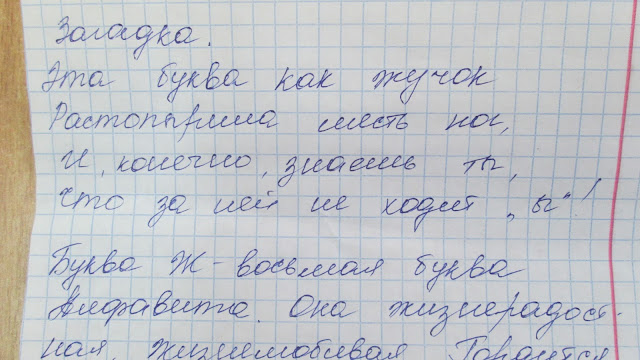 Загадка.
Эта буква как жучок
Растопырила шесть ног,
И, конечно, знаешь ты,
Что за ней не ходит „ы"!
Буква Ж - восьмая буква
Алфавита. Она жизнерадост-
ная, жизнелюбивая